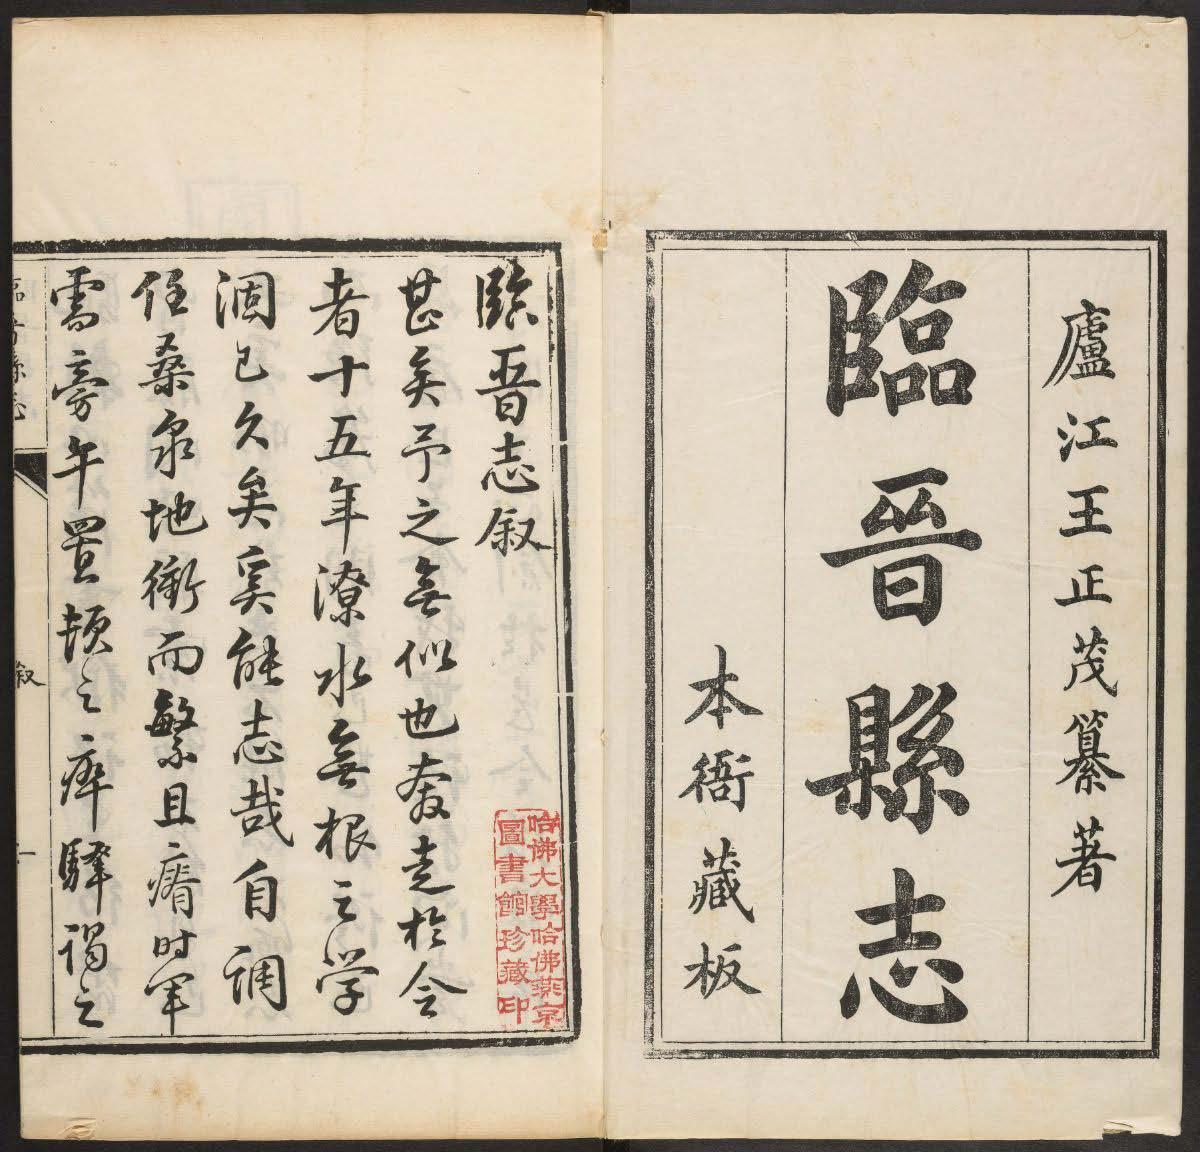 廬江王正茂纂著
臨晉縣志
本衙藏板
臨晉志叙
甚矣予之無似也奔走於今
者十五年潦水無根之学
涸已久矣奚能志哉自調
任桑泉地衝而繁且瘠时軍
需旁午置頓之瘁驛遞之
臨晉縣志
叙
一
哈佛大學哈佛燕京
圖書館珍藏印